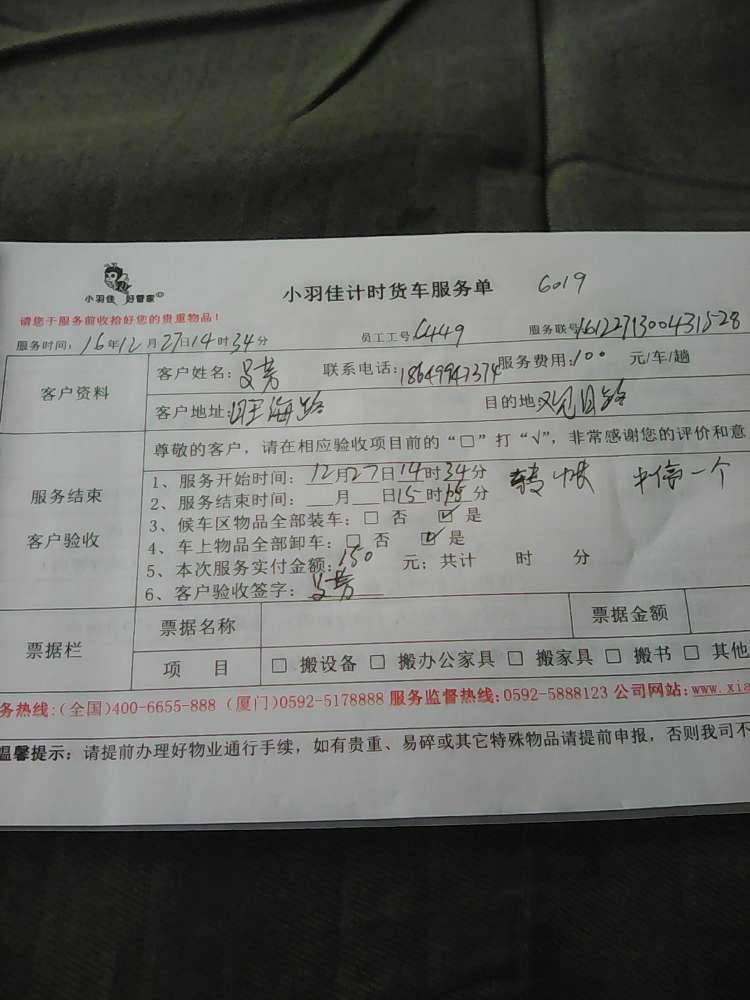 小羽佳 好管家
小羽佳计时货车服务单 6019
请您于服务前收拾好您的贵重物品!
服务时间: 16年12月27日14时34分 员工工号 6449 服务联号 1612271300431528
客户资料
客户姓名: 联系电话: 18649947374 服务费用: 100 元/车/趟
客户地址: 旺海路 目的地 观日路
尊敬的客户,请在相应验收项目前的“□”打“√”,非常感谢您的评价和意
服务结束
客户验收
1、服务开始时间: 12月27日14时34分 转账 中信一个
2、服务结束时间: 月 日15时 分
3、候车区物品全部装车: □ 否 ☑ 是
4、车上物品全部卸车: □ 否 ☑ 是
5、本次服务实付金额: 150 元; 共计 时 分
6、客户验收签字:
票据栏
票据名称 票据金额
项 目 □ 搬设备 □ 搬办公家具 □ 搬家具 □ 搬书 □ 其他
务热线:(全国)400-6655-888 (厦门)0592-5178888 服务监督热线:0592-5888123 公司网站: www.xia
温馨提示: 请提前办理好物业通行手续,如有贵重、易碎或其它特殊物品请提前申报,否则我司不